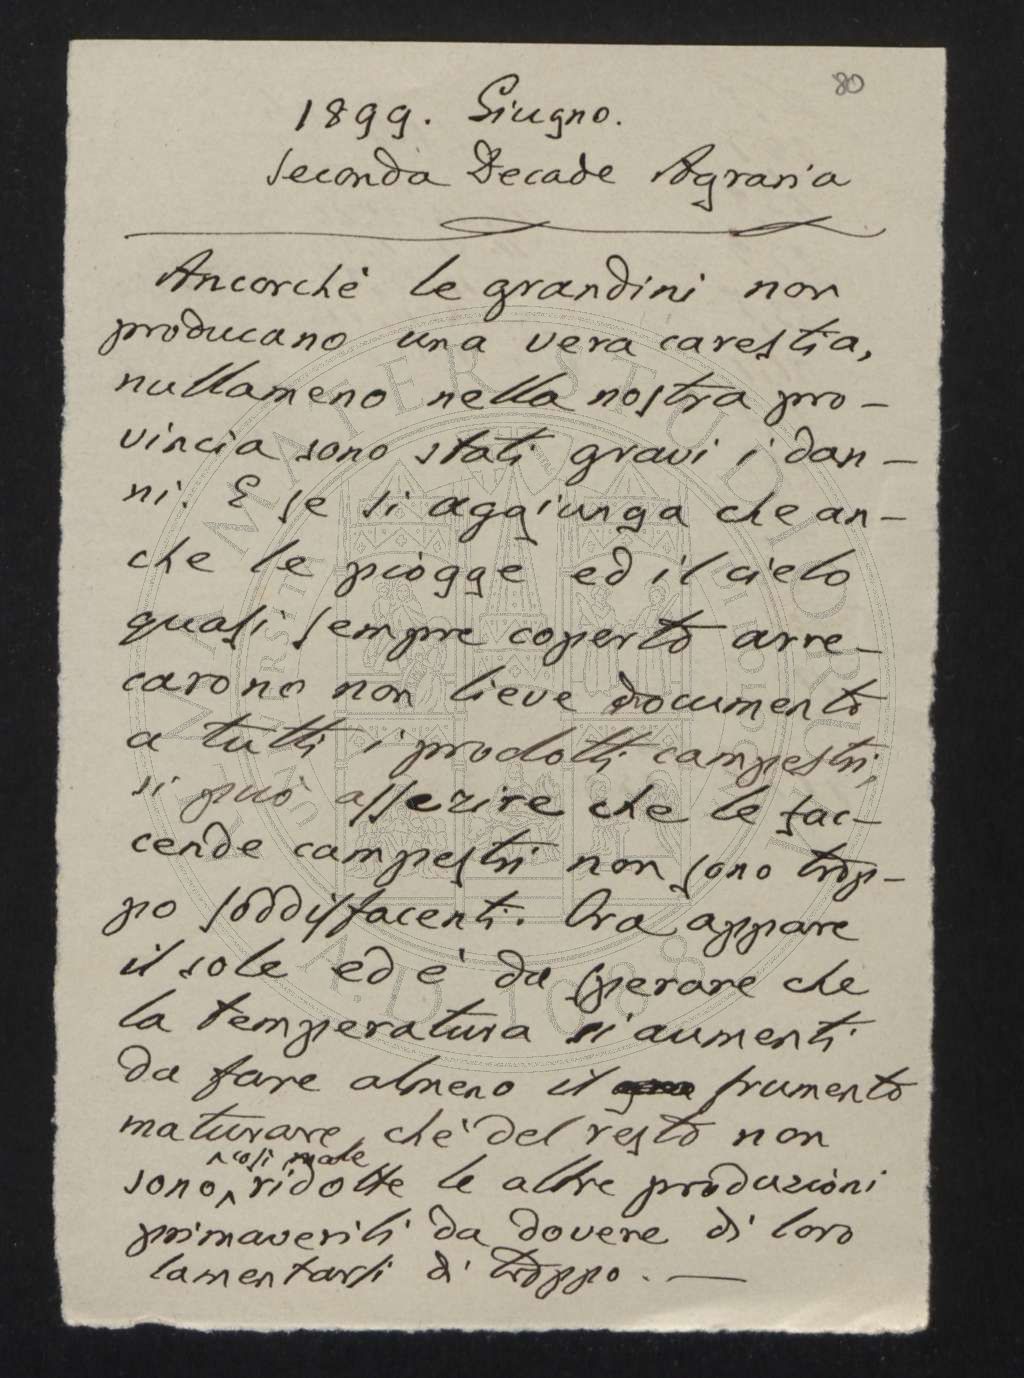 80
1899. Giugno.
Seconda Decade Agraria
Ancorchè le grandini non
producano una vera carestia,
nullameno nella nostra pro-
vincia sono stati gravi i dan-
ni. E se si aggiunga che an-
che le piogge ed il cielo
quasi sempre coperto arre-
carono non lieve documento
a tutti i prodotti campestri,
si può asserire che le fac-
cende campestri non sono trop-
po soddisfacenti. Ora appare
il sole ed è da sperare che
la temperatura si aumenti
da fare almeno il frumento
maturare, chè del resto non
sono così male ridotte le altre produzioni
primaverili da dovere di loro
lamentarsi di troppo. —
ALMA MATER STUDIORUM
A.D. 1088